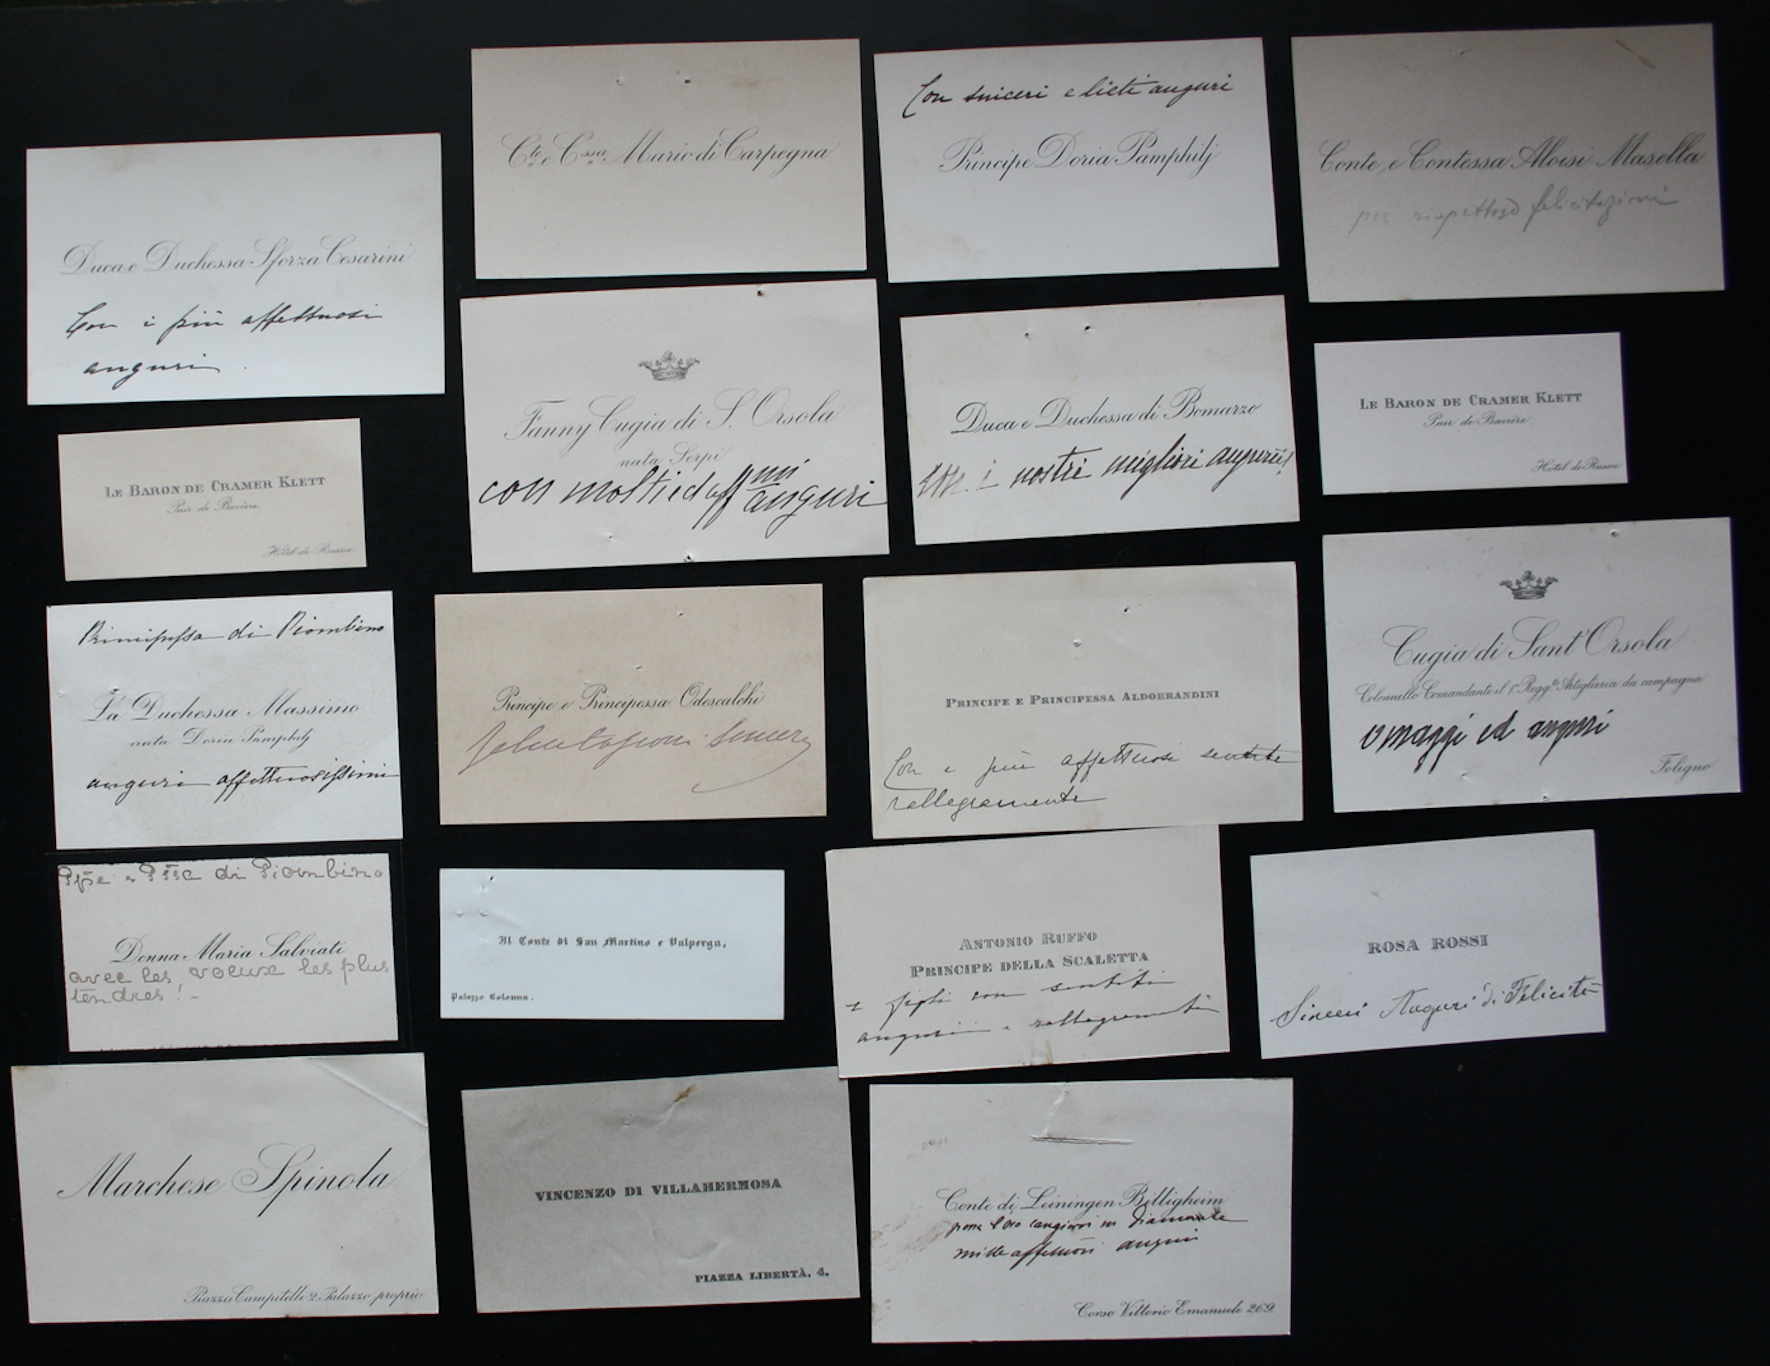 Duca e Duchessa Sforza Cesarini
Con i più affettuosi
auguri
Cte. e Cssa. Mario di Carpegna
Con sinceri e lieti auguri
Principe Doria Pamphilj
Conte e Contessa Aloisi Masella
per rispettose felicitazioni
LE BARON DE CRAMER KLETT
Pair de Bavière
Hôtel de Russie
Fanny Cugia di S. Orsola
nata Serpi
con molti ed affmi
auguri
Duca e Duchessa di Bomarzo
i nostri migliori auguri!
LE BARON DE CRAMER KLETT
Pair de Bavière
Hôtel de Russie
Principessa di Piombino
La Duchessa Massimo
nata Doria Pamphilj
auguri affettuosissimi
Principe e Principessa Odescalchi
felicitazioni sincere
PRINCIPE E PRINCIPESSA ALDOBRANDINI
Con i più affettuosi sentite
rallegramente
Cugia di Sant' Orsola
Colonnello Comandante il 1º Reggto Artiglieria da campagna
omaggi ed auguri
Foligno
di Piombino
Donna Maria Salviati
avec les voeux les plus
tendres! -
Il Conte di San Martino e Valperga,
Palazzo Colonna.
ANTONIO RUFFO
PRINCIPE DELLA SCALETTA
e figli con sentiti
auguri e rallegramenti
ROSA ROSSI
Sinceri Auguri di Felicità
Marchese Spinola
Piazza Campitelli 2 Palazzo proprio
VINCENZO DI VILLAHERMOSA
PIAZZA LIBERTÀ, 4.
Conte di Leiningen Billigheim
mille affettuosi auguri
Corso Vittorio Emanuele 269.